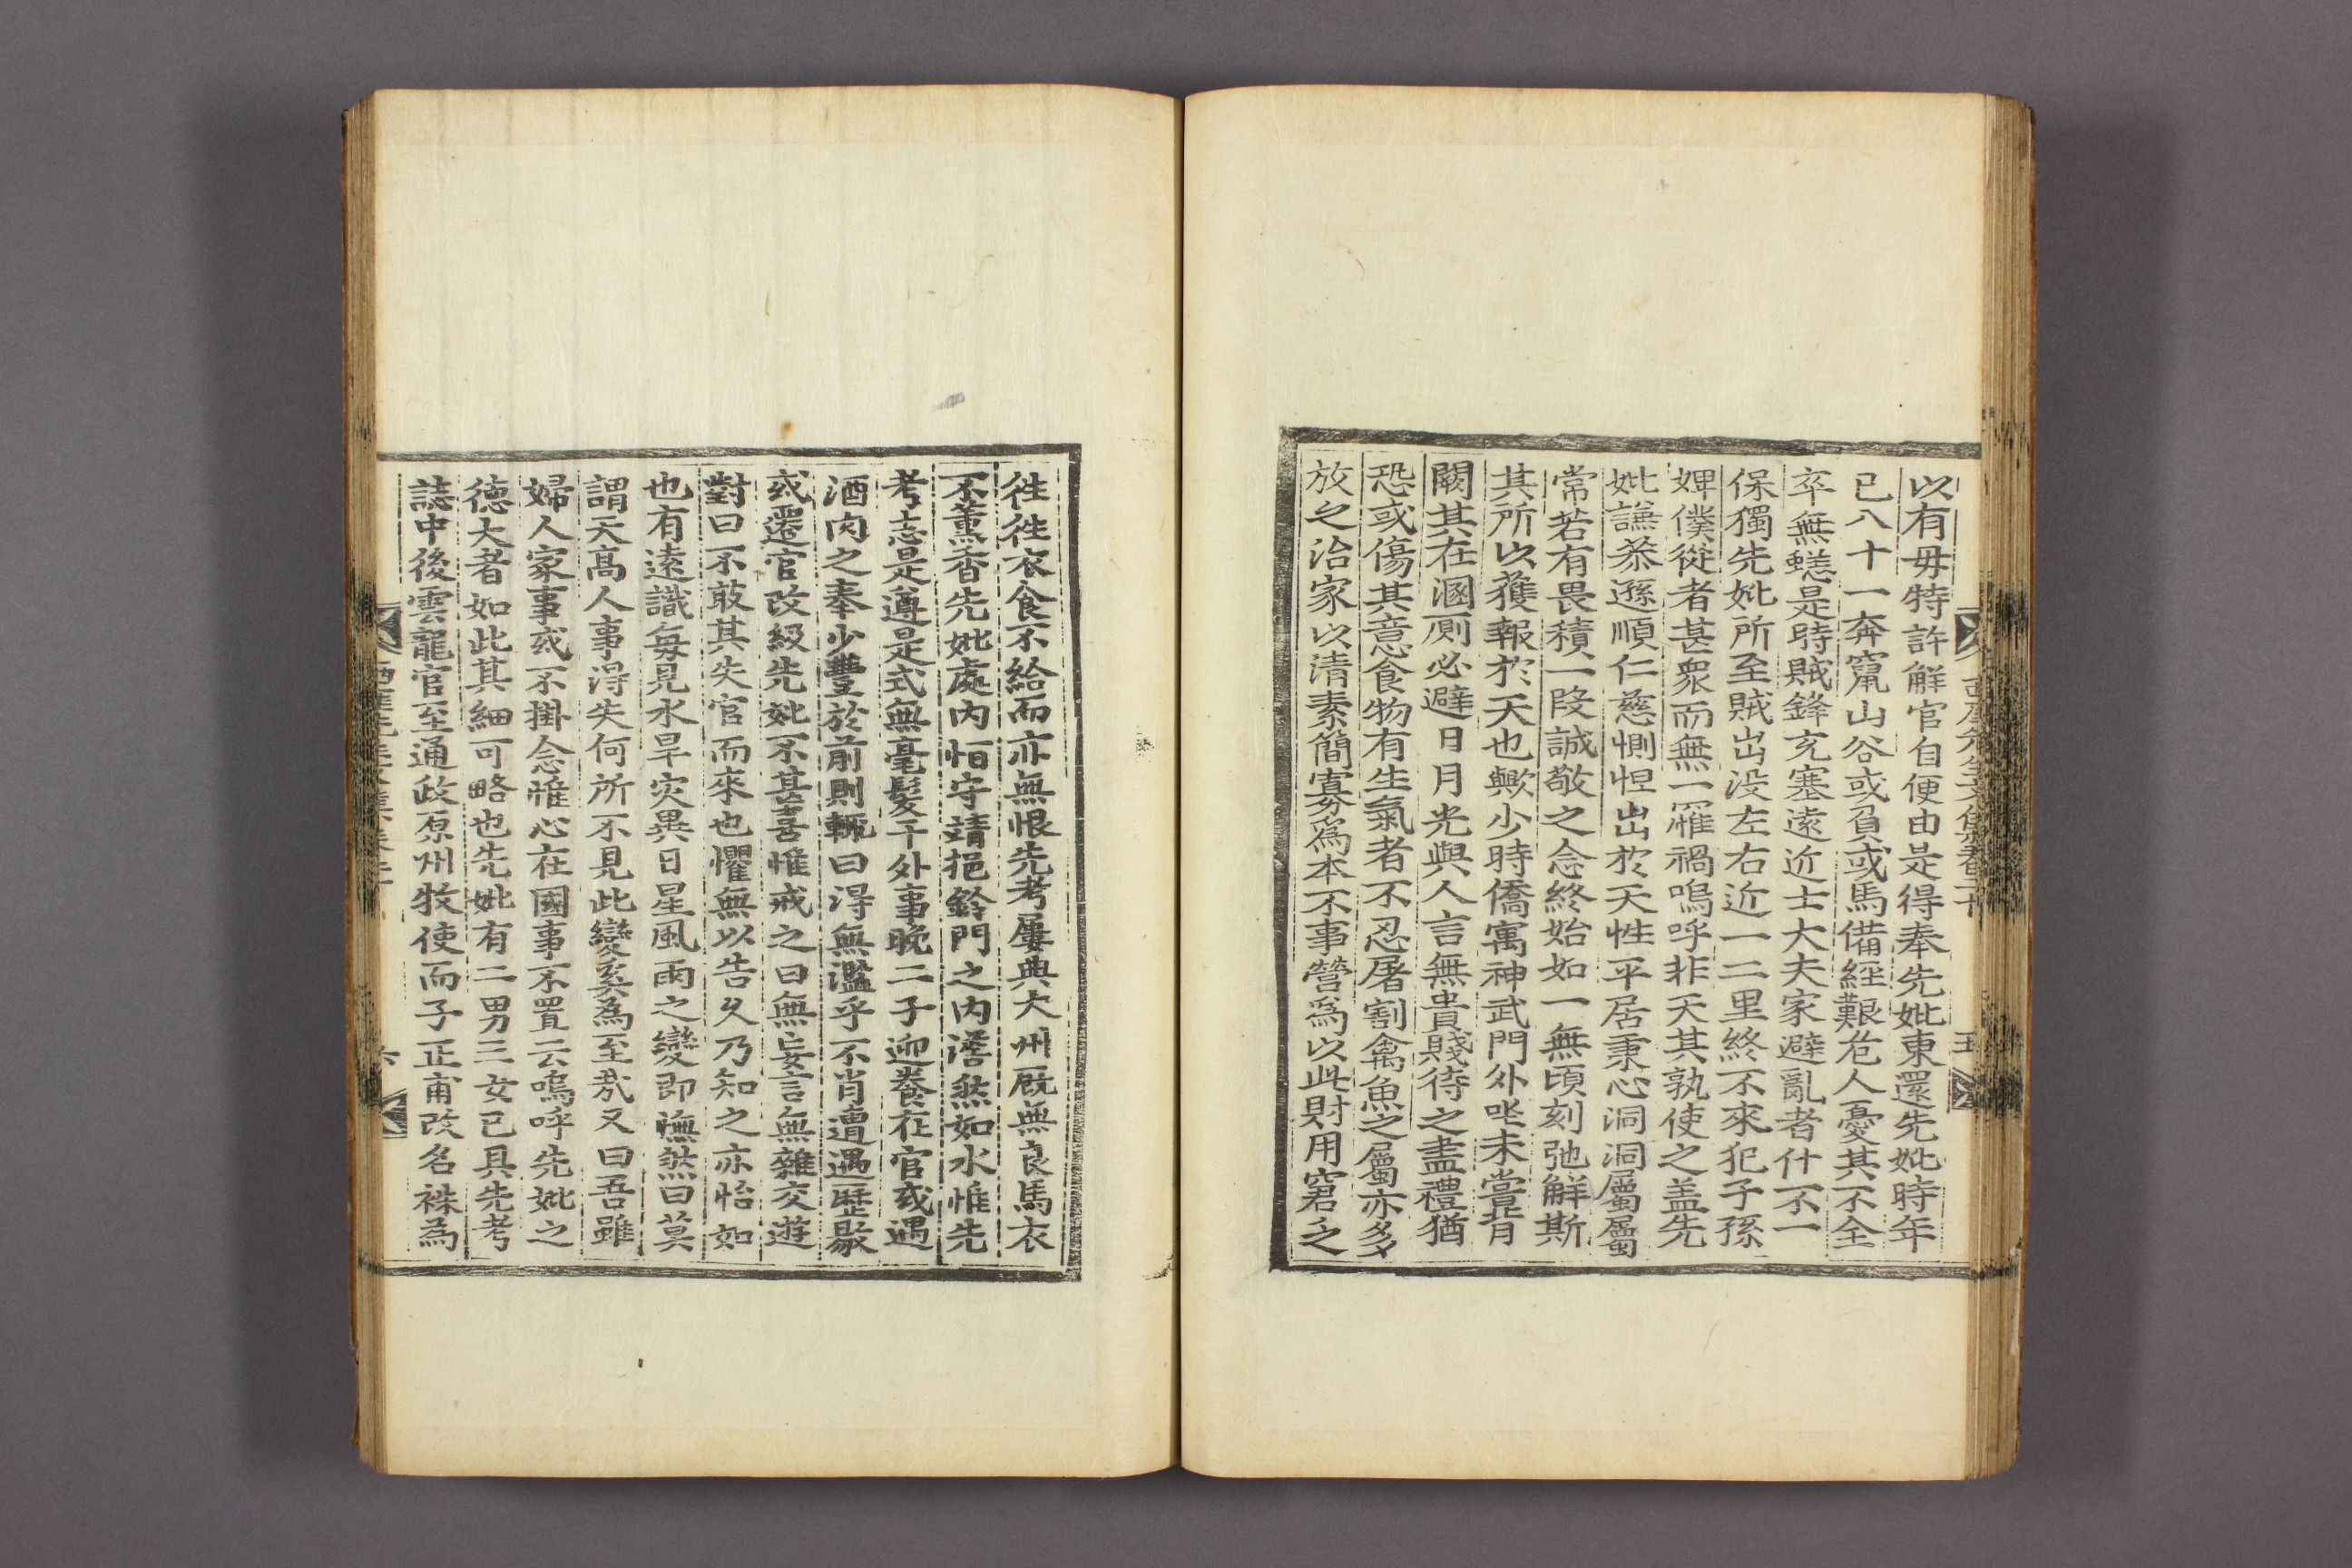 西厓先生文集卷二十
五
以有毋特許解官自便由是得奉先妣東還先妣時年
已八十一奔竄山谷或負或馬備經艱危人憂其不全
卒無蜤是時賊鋒充塞遠近士大夫家避亂者什不一
保獨先妣所至賊出没左右近一二里終不來犯子孫
婢僕從者甚衆而無一罹禍嗚呼非天其孰使之盖先
妣謙恭遜順仁慈惻怛出於天性平居秉心洞洞屬屬
常若有畏積一段誠敬之念終始如一無頃刻弛觧斯
其所以獲報於天也歟少時僑寓神武門外坐未嘗背
闕其在溷厠必避日月光與人言無貴賤待之盡禮猶
恐或傷其意食物有生氣者不忍屠割禽魚之屬亦多
放之治家以清素簡寡爲本不事營爲以此財用窘乏
徃徃衣食不給而亦無恨先考屢典大州厩無良馬衣
不薰香先妣處内恒守靖挹鈴門之内澹然如水惟先
考志是遵是式無毫髮干外事晩二子迎養在官或遇
酒肉之奉少豐於前則輒曰得無濫乎不肖遭遇歷敭
或遷官改級先妣不甚喜惟戒之曰無妄言無雜交遊
對曰不敢其失官而來也懼無以告久乃知之亦怡如
也有遠識每見水旱灾異日星風雨之變即憮然曰莫
謂天高人事得失何所不見此變奚爲至哉又曰吾雖
婦人家事或不掛念惟心在國事不置云嗚呼先妣之
德大者如此其細可略也先妣有二男三女已具先考
誌中後雲龍官至通政原州牧使而子正甫改名裿為
西厓先生文集卷二十
六